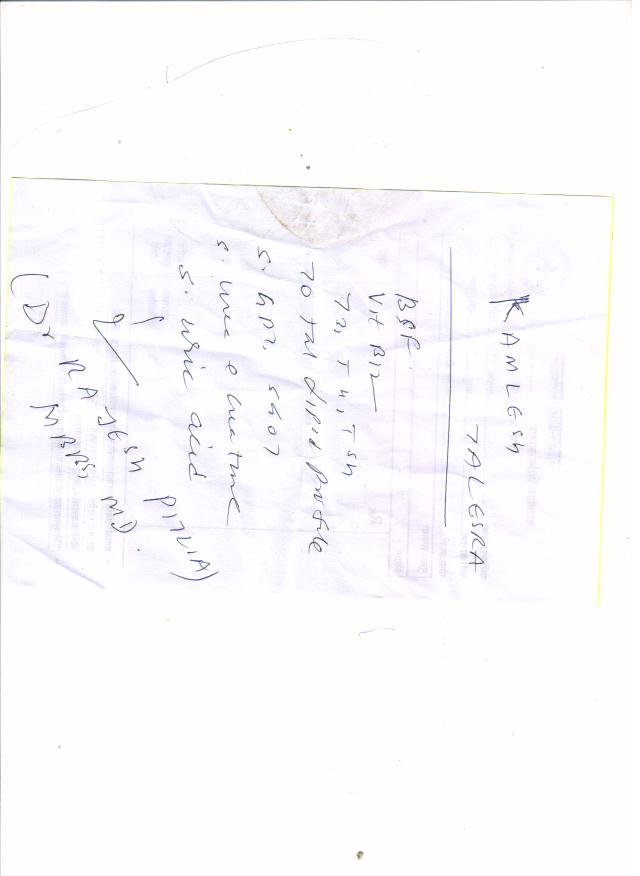 KAMLESH
TALESRA
BSF.
Vit B12
T3, T4, TSH
Total Lipid Profile
S. GPT, SGOT
S. Urea Creatine
S. Uric acid
(Dr RAJESH PITLIA)
MBBS, MD.